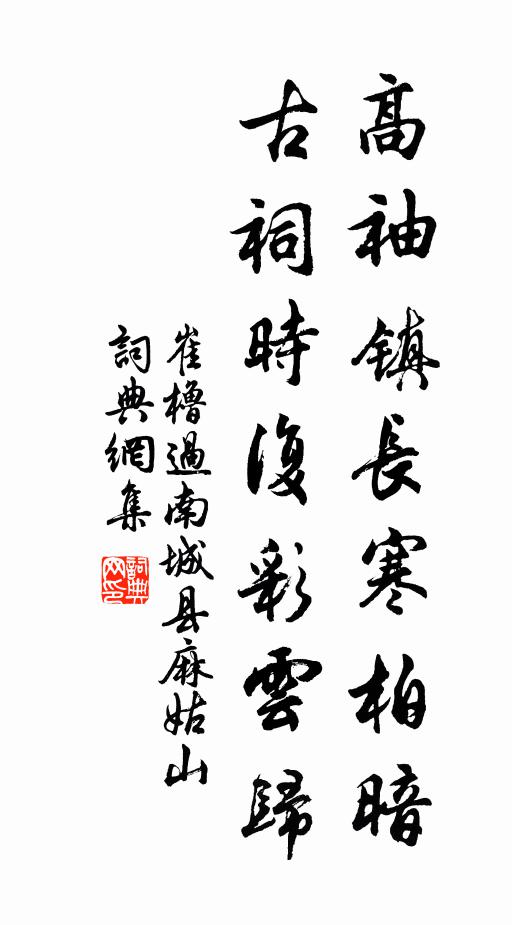 高袖镇長寒柏暗
古祠時復彩雲歸
崔櫓過南城县麻姑山
詞典網集
詞典网印